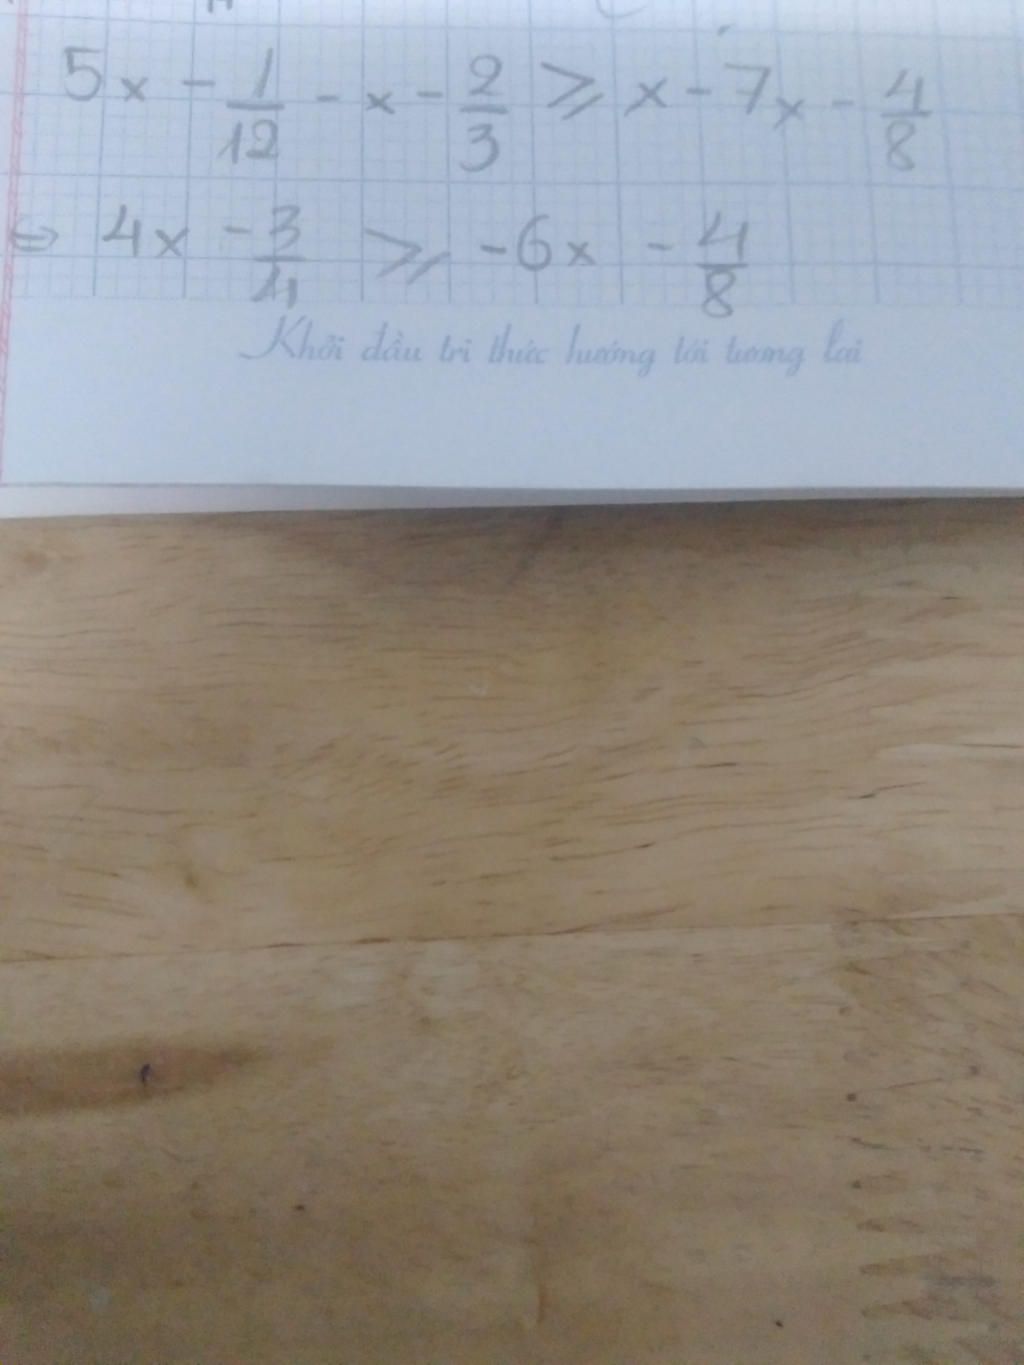 5x - 1/12 - x - 2/3 ⩾ x - 7x - 4/8
⇔ 4x - 3/4 ⩾ -6x - 4/8
Khởi đầu tri thức hướng tới tương lai